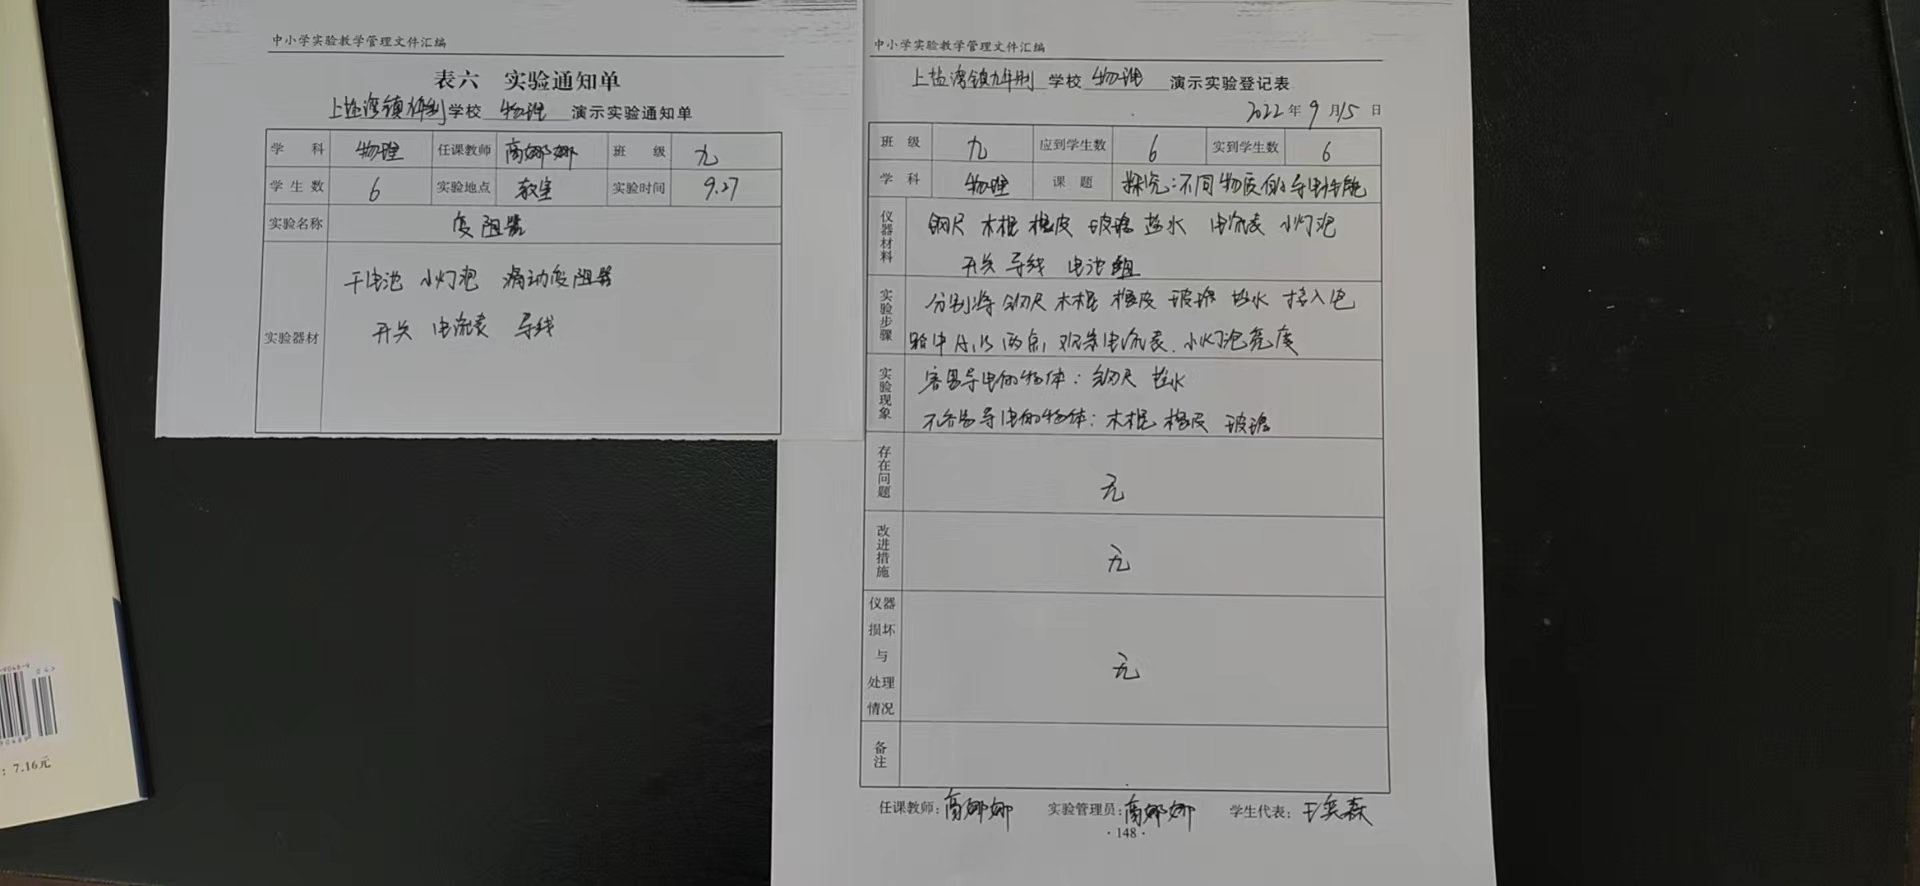 中小学实验教学管理文件汇编
表六 实验通知单
上盐湾镇九年制学校 物理 演示实验通知单
学科 物理 任课教师 高娜娜 班级 九
学生数 6 实验地点 教室 实验时间 9.27
实验名称 变阻器
实验器材
干电池 小灯泡 滑动变阻器
开关 电流表 导线
中小学实验教学管理文件汇编
上盐湾镇九年制学校 物理 演示实验登记表
2022年9月15日
班级 九 应到学生数 6 实到学生数 6
学科 物理 课题 探究:不同物质的导电性能
仪器材料
钢尺 木棍 橡皮 玻璃 盐水 电流表 小灯泡
开关 导线 电池组
实验步骤
分别将钢尺 木棍 橡皮 玻璃 盐水 接入电
路中A,B两点,观察电流表、小灯泡亮度
实验现象
容易导电的物体:钢尺 盐水
不容易导电的物体:木棍 橡皮 玻璃
存在问题 无
改进措施 无
仪器损坏与处理情况 无
备注
任课教师:高娜娜 实验管理员:高娜娜 学生代表:王奕森
·148·
7.16元